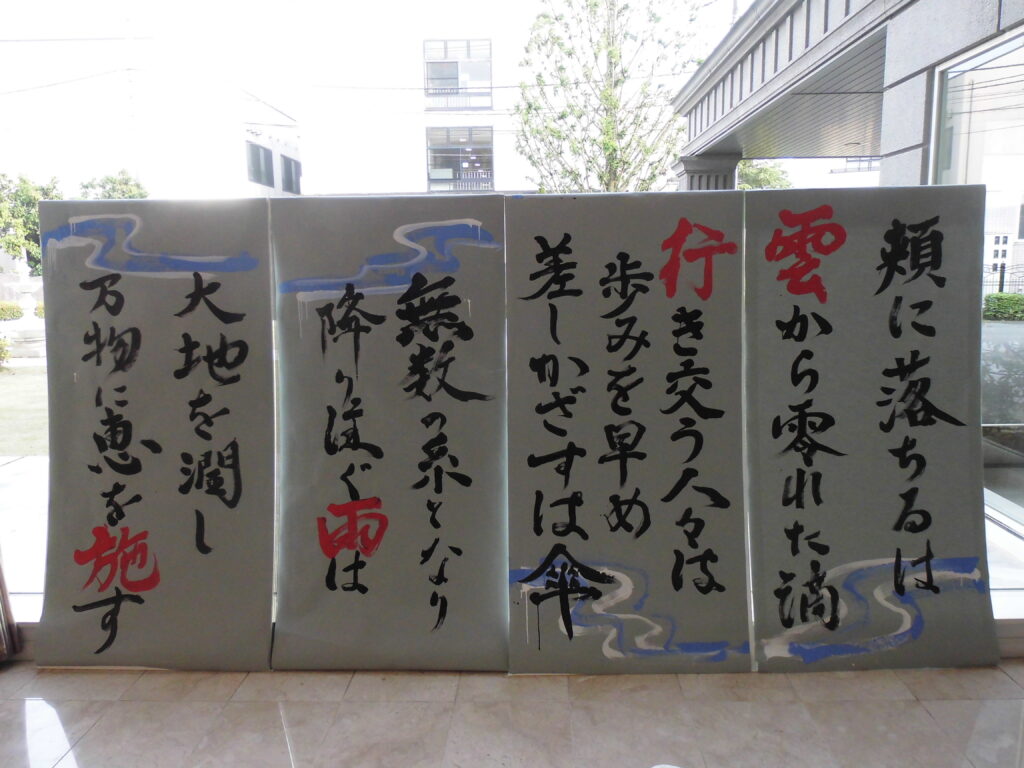 頬に落ちるは
雲から零れた滴
行き交う人々は
歩みを早め
差しかざすは傘
無数の糸となり
降り注ぐ雨は
大地を潤し
万物に恵を施す